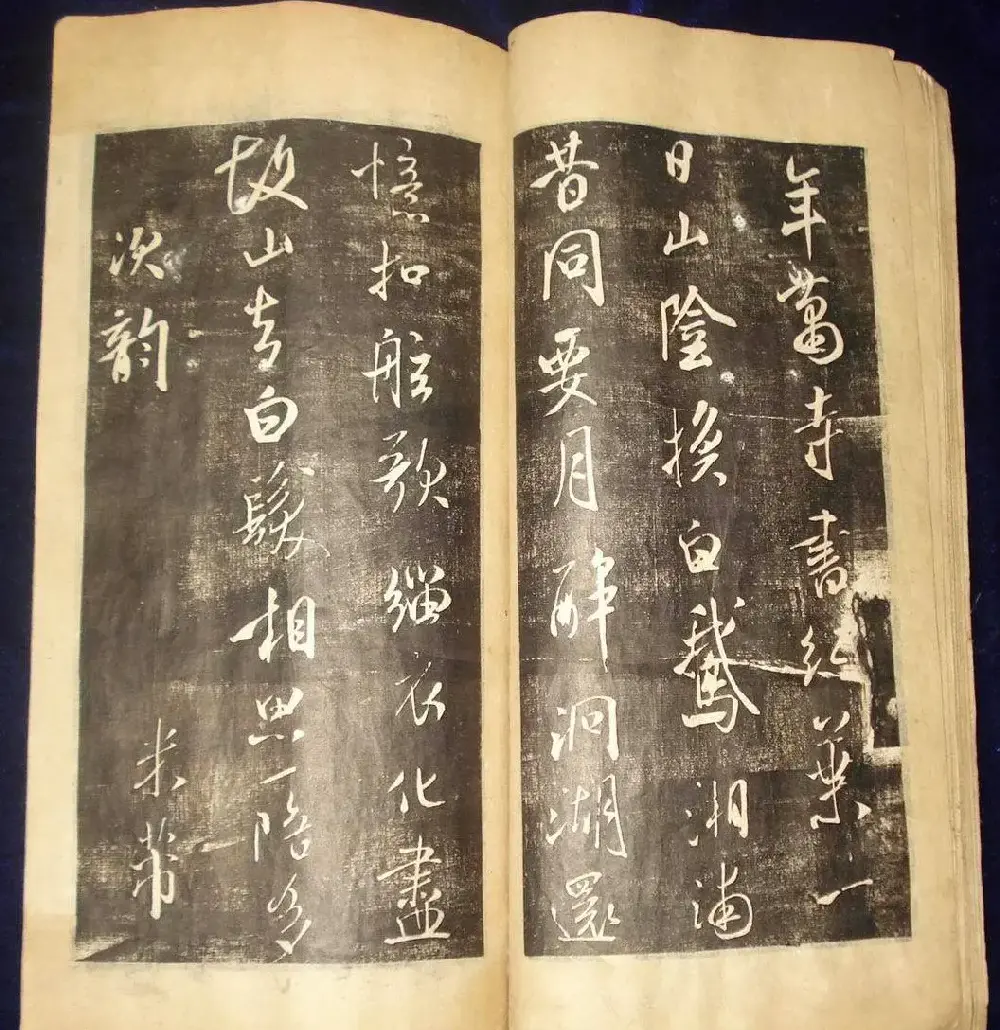 年蕭寺書紅葉一
日山陰換白鵝湘浦
昔同要月醉洞湖還
憶扣舷歌緇衣化盡
故山去白髮相思一陪多
次韵
米芾